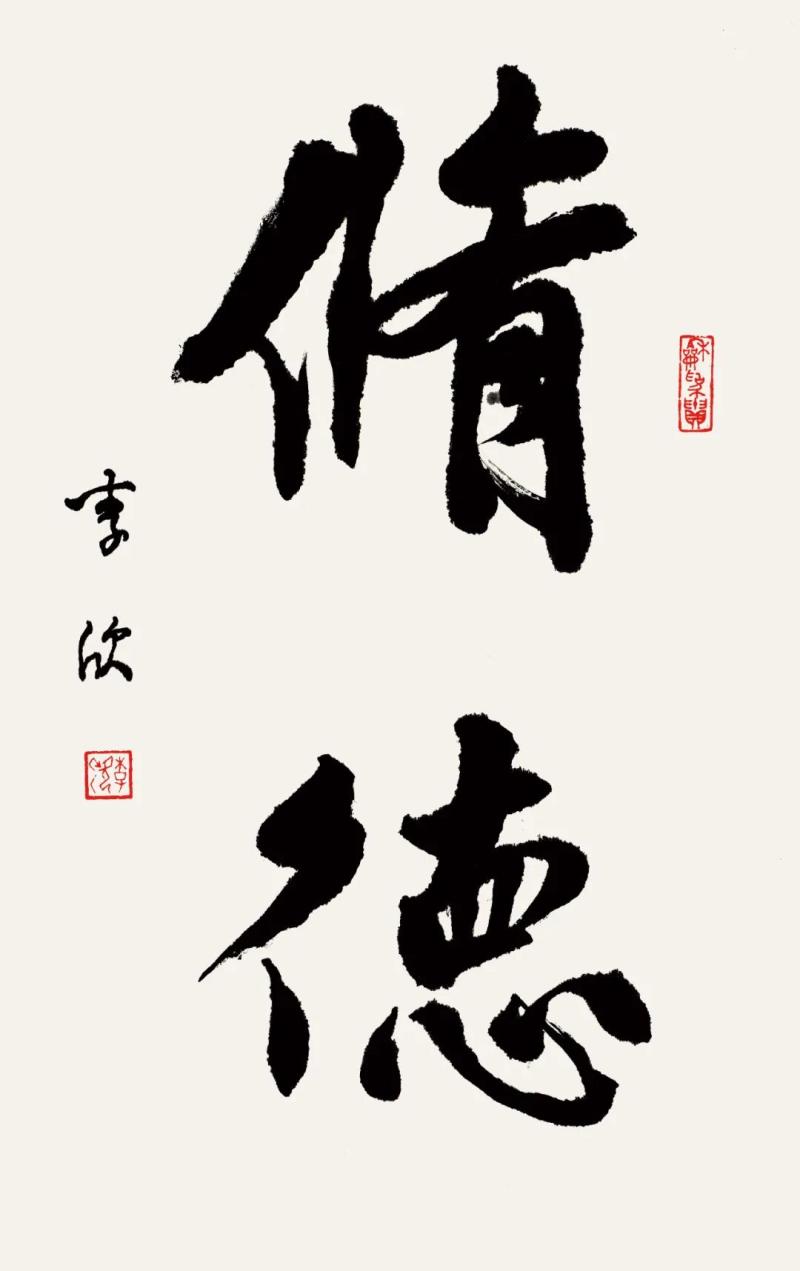 脩德
李欣